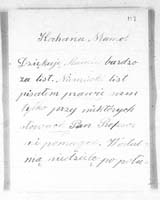 Kochana Mamo!
Dziękuję Mamie bardzo
za list. Niemiecki list
pisałem prawie sam
tylko przy niektórych
słowach Pan Profesor
mi pomagał.
mą niedzielę po połu-